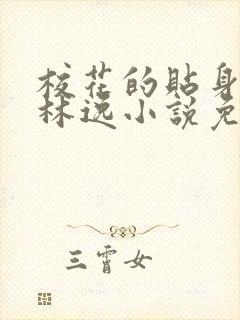 校花的貼身
林逸小說免
三霄女